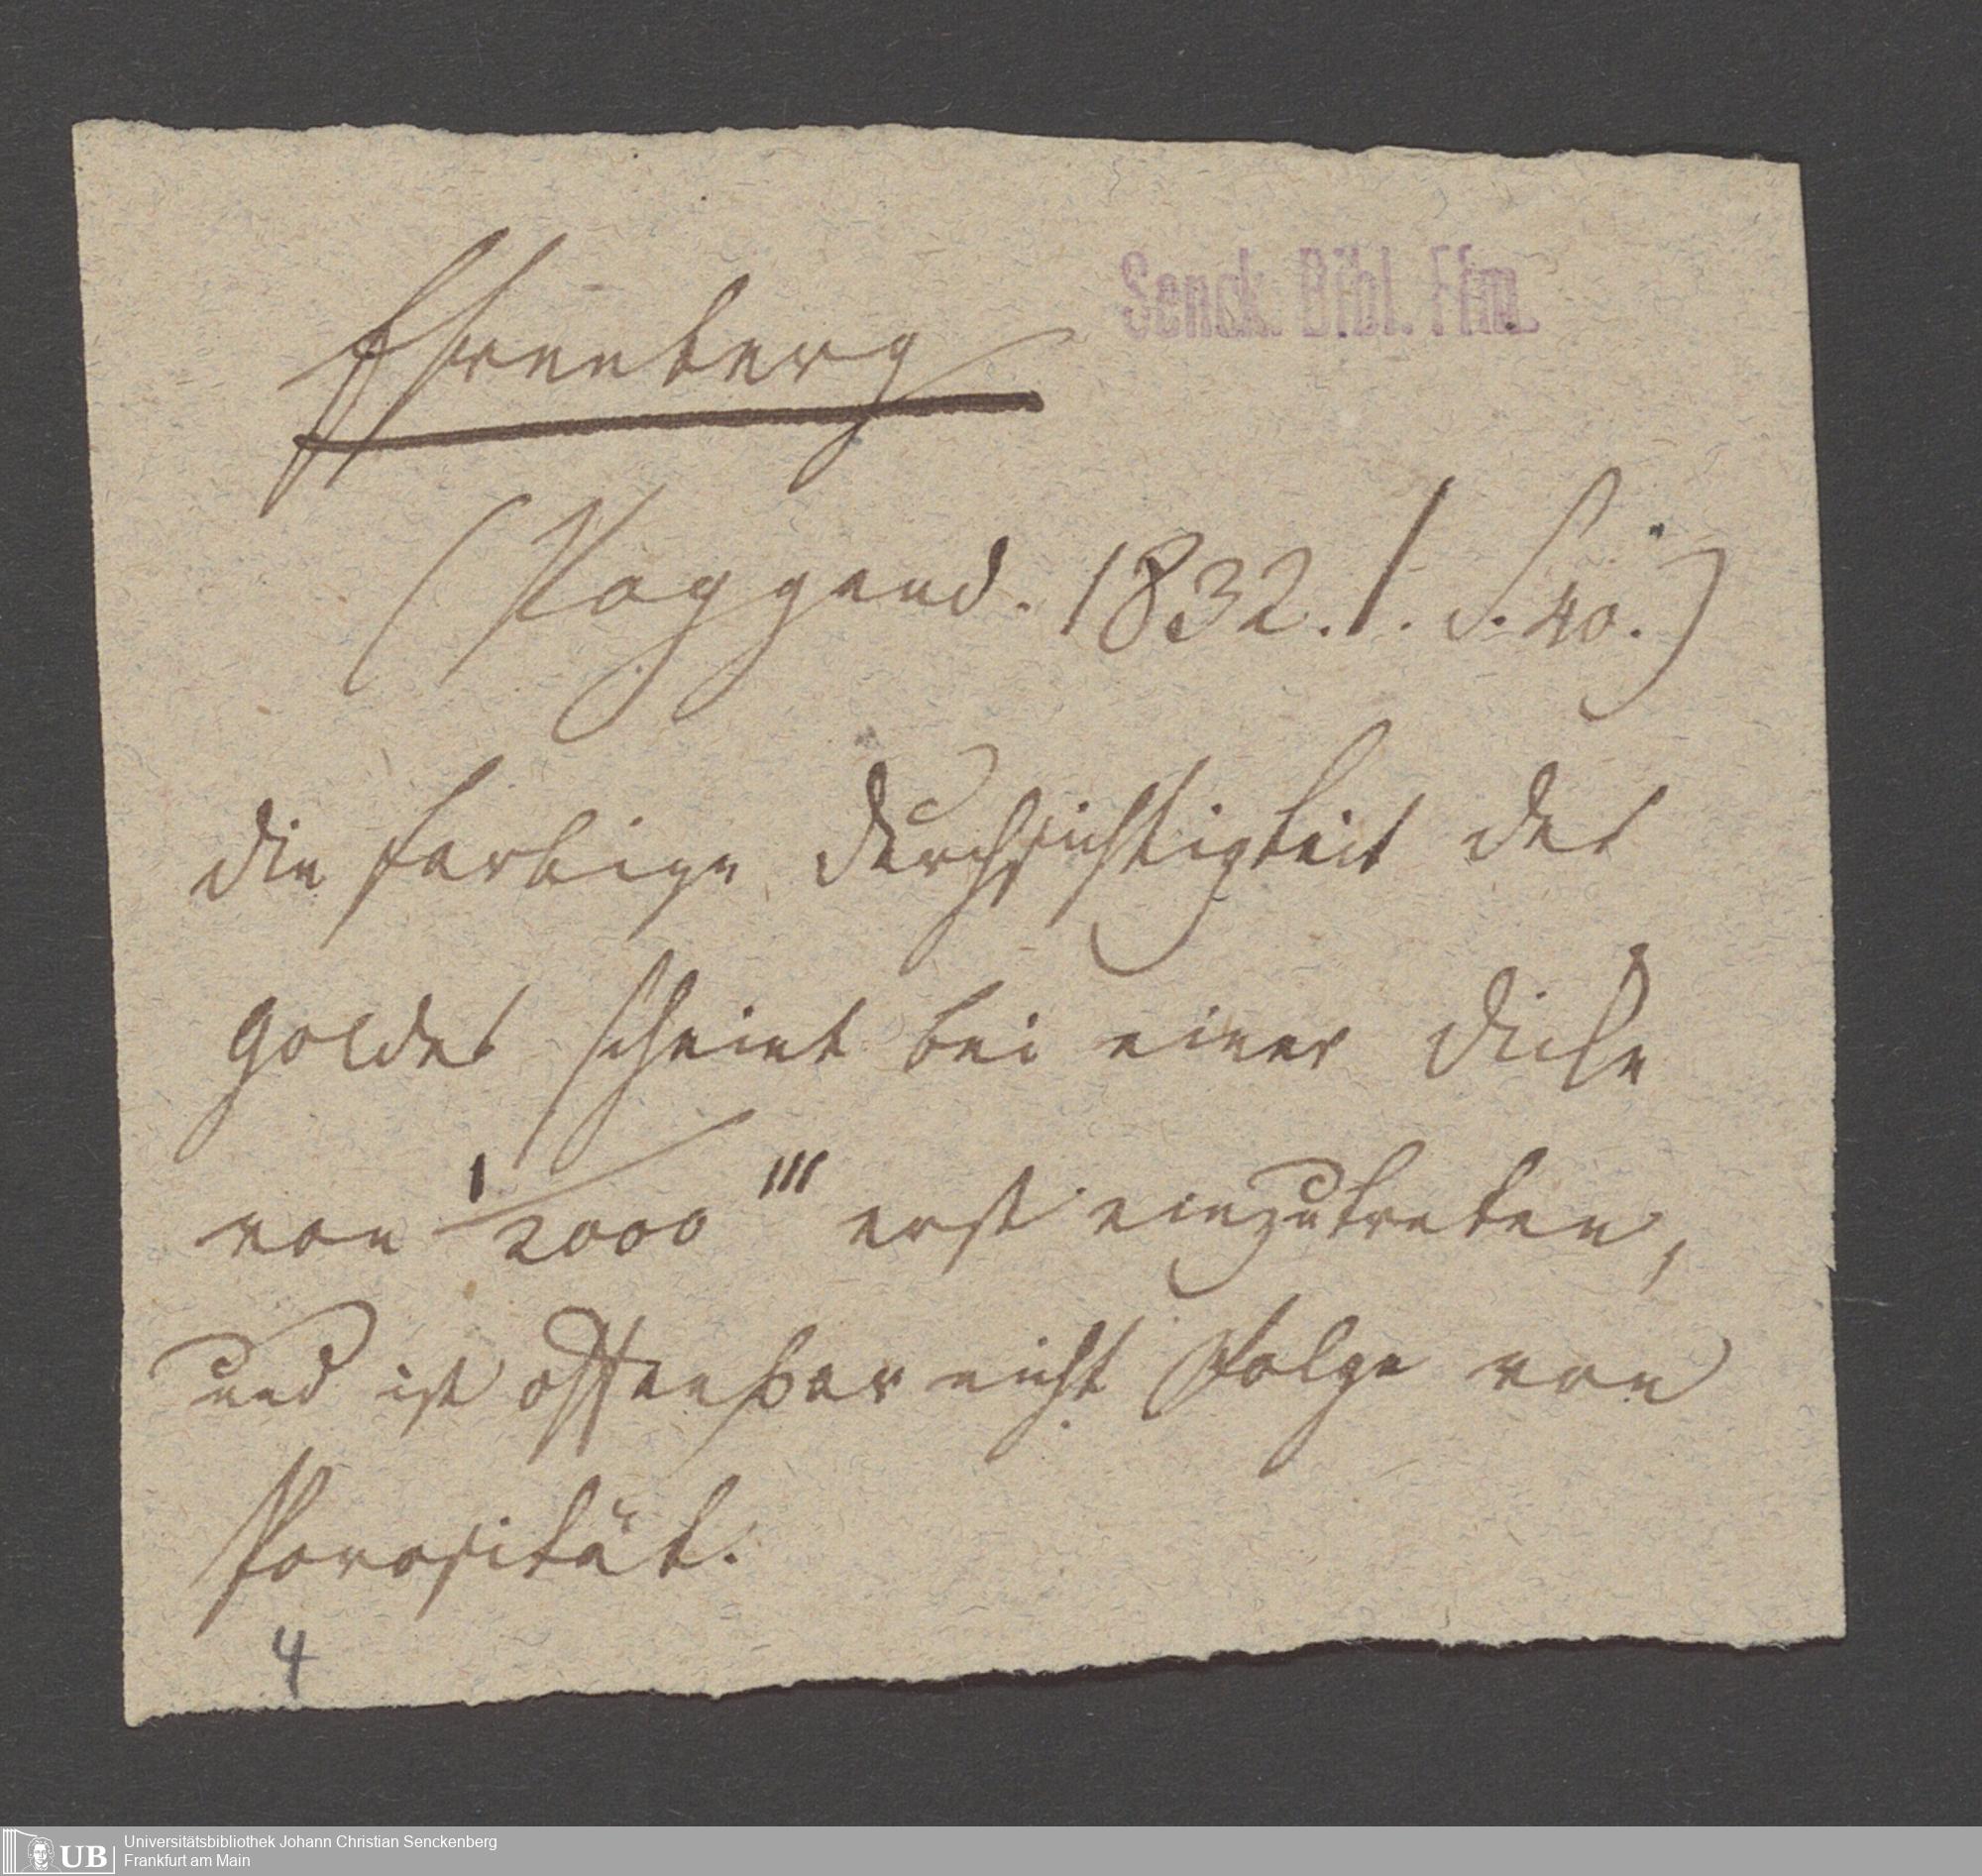 Ehrenberg
Senck. Bibl. Ffm.
(Poggend. 1832. 1. S. 40.)
die farbige Durchsichtigkeit des
Goldes scheint bei einer Dicke
von 1/2000 ''' erst einzutreten,
und ist offenbar nicht Folge von
Porosität.
4
UB
Universitätsbibliothek Johann Christian Senckenberg
Frankfurt am Main